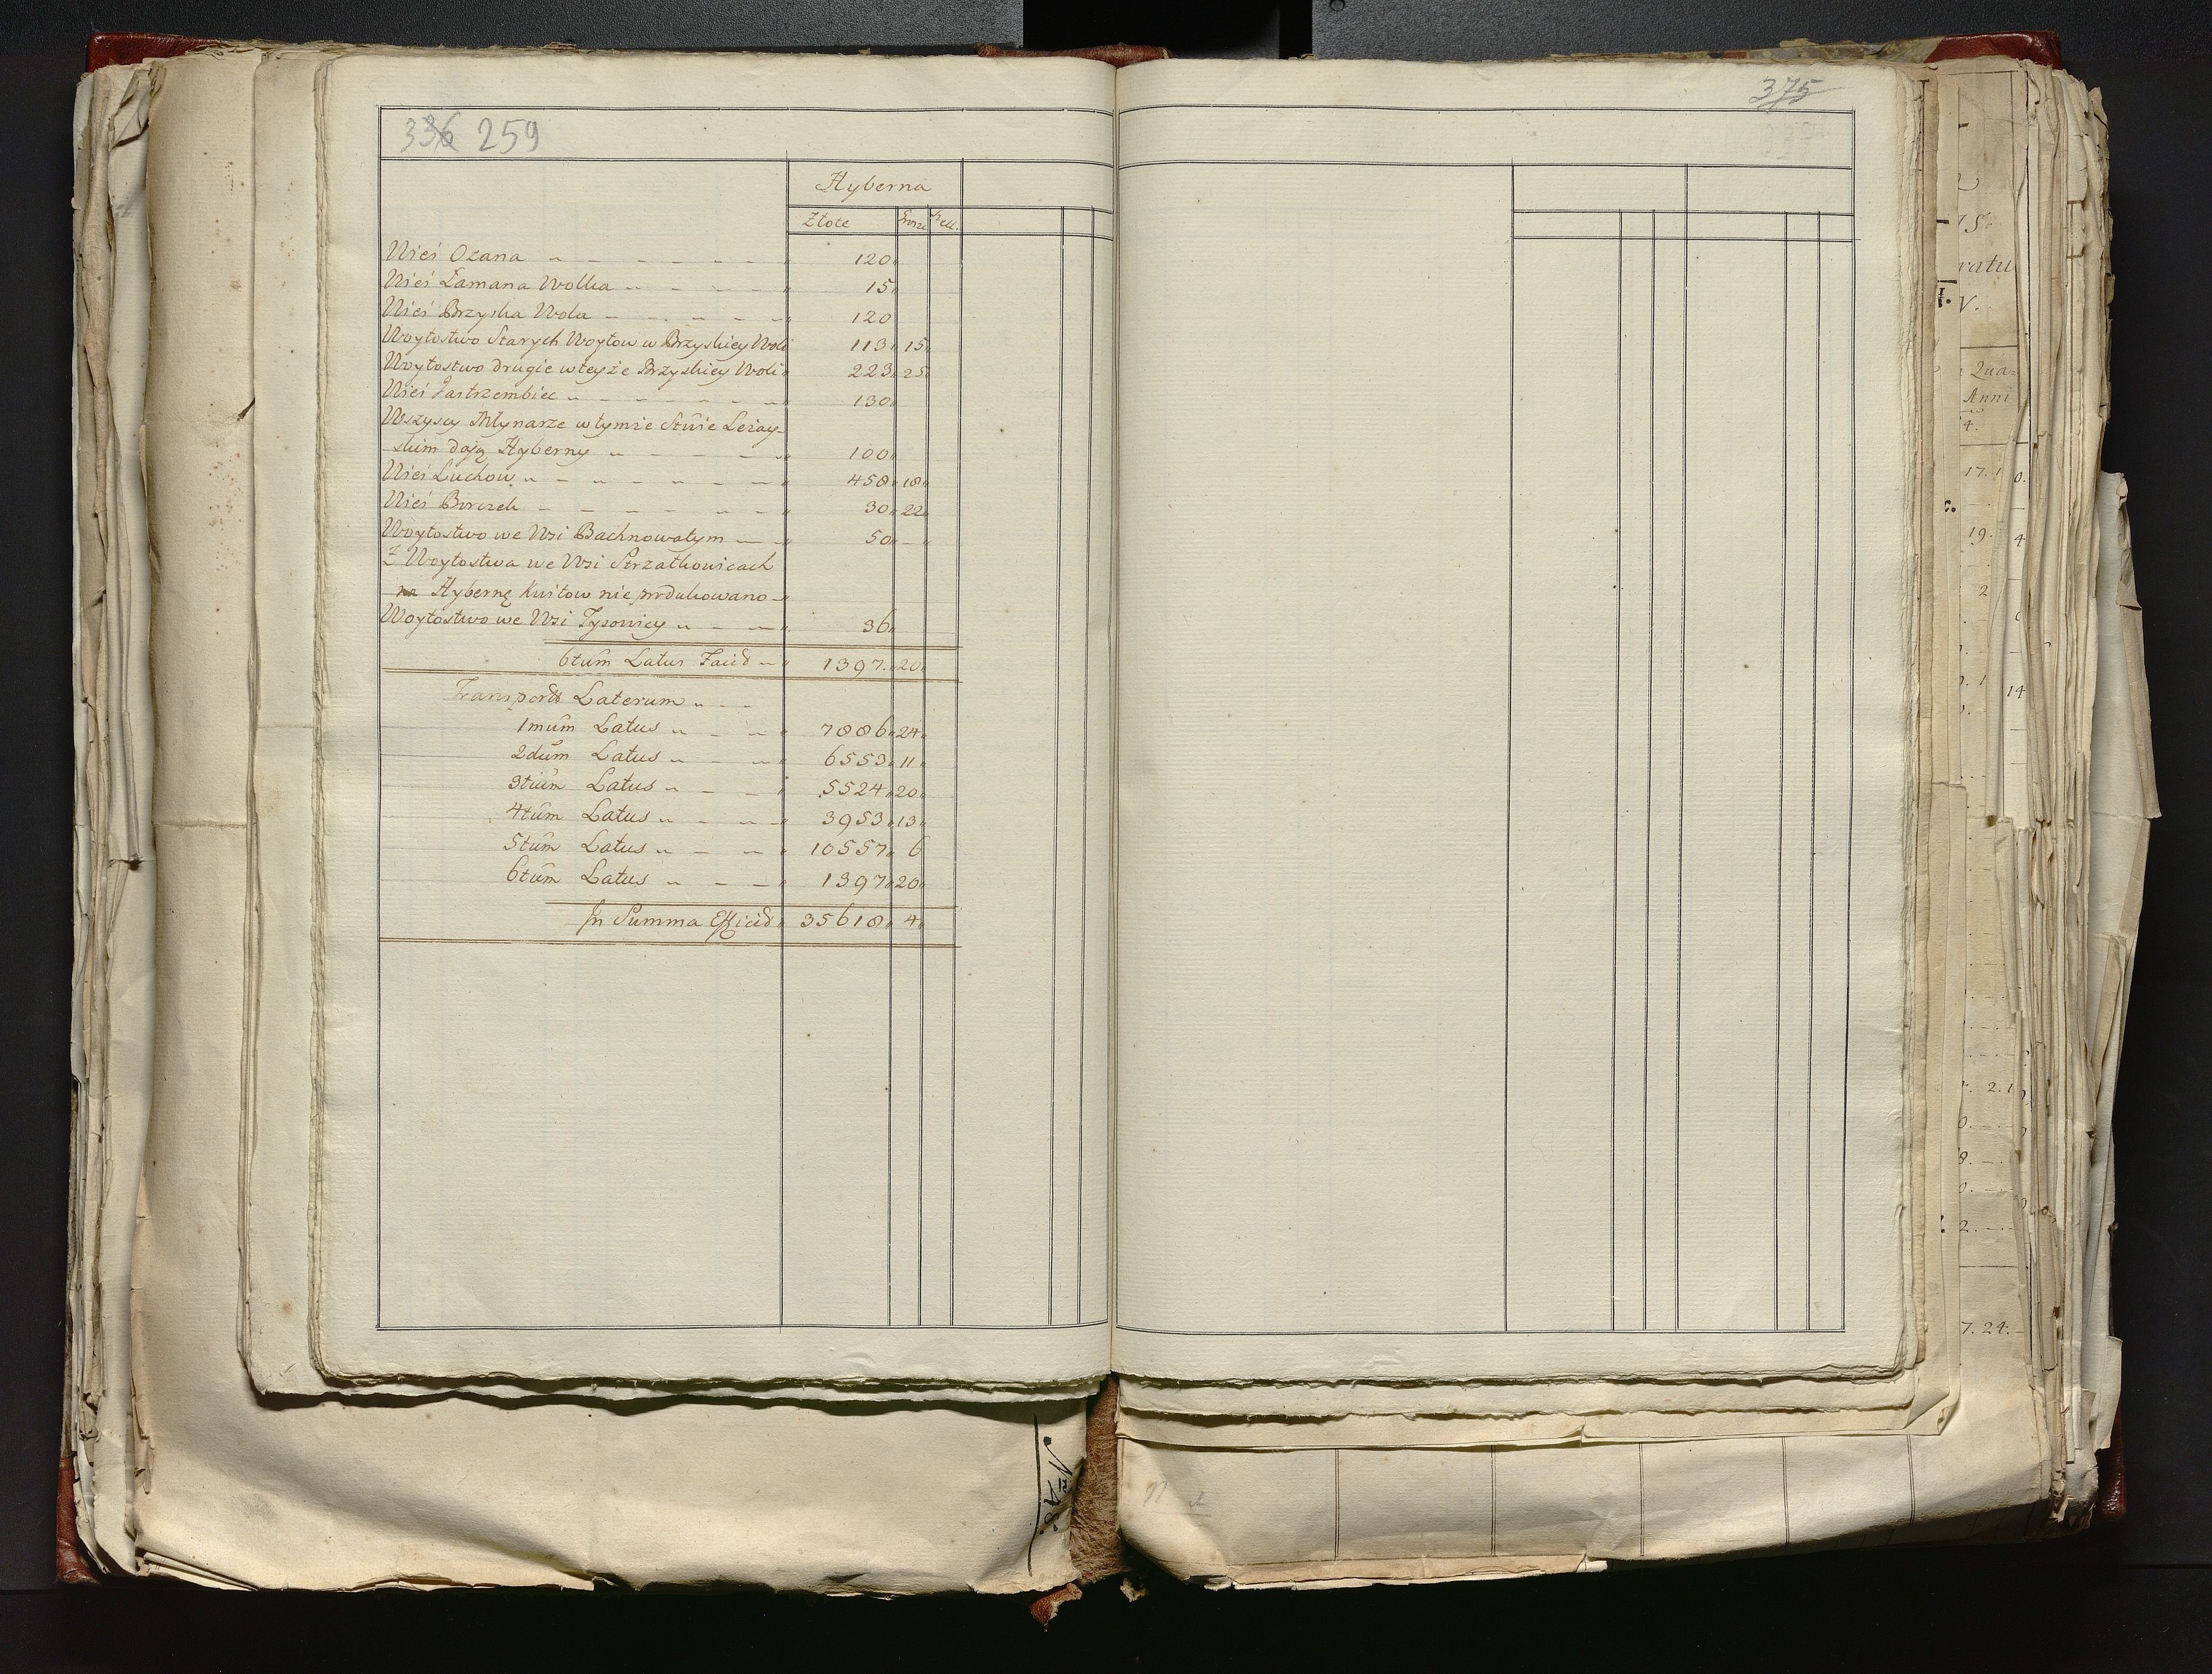 375
336 259
Hyberna
Złote Grosz Szel.
Wieś Ozana 120
Wieś Łamana Wolka 15
Wieś Brzyska Wola 120
Woytostwo Starych Woytow w Brzyskiey Woli 113 15
Woytostwo drugie w teyże Brzyskiey Woli 223 25
Wieś Jastrzembiec 130
Wszyscy Młynarze w tymże Stwie Leżay-
skim dają Hyberny 100
Wieś Luchow 458 18
Wieś Borczek 30 22
Woytostwo we Wsi Bachnowatym 50 —
Z Woytostwa we Wsi Strzałkowicach
na Hybernę Kwitow nie produkowano
Woytostwo we Wsi Tysowicy 36
6tum Latus Facid 1397 20
Transport Laterum
1mum Latus 7886 24
2dum Latus 6553 11
3tium Latus 5524 20
4tum Latus 3953 13
5tum Latus 10557 6
6tum Latus 1397 20
In Summa Efficid 35618 4